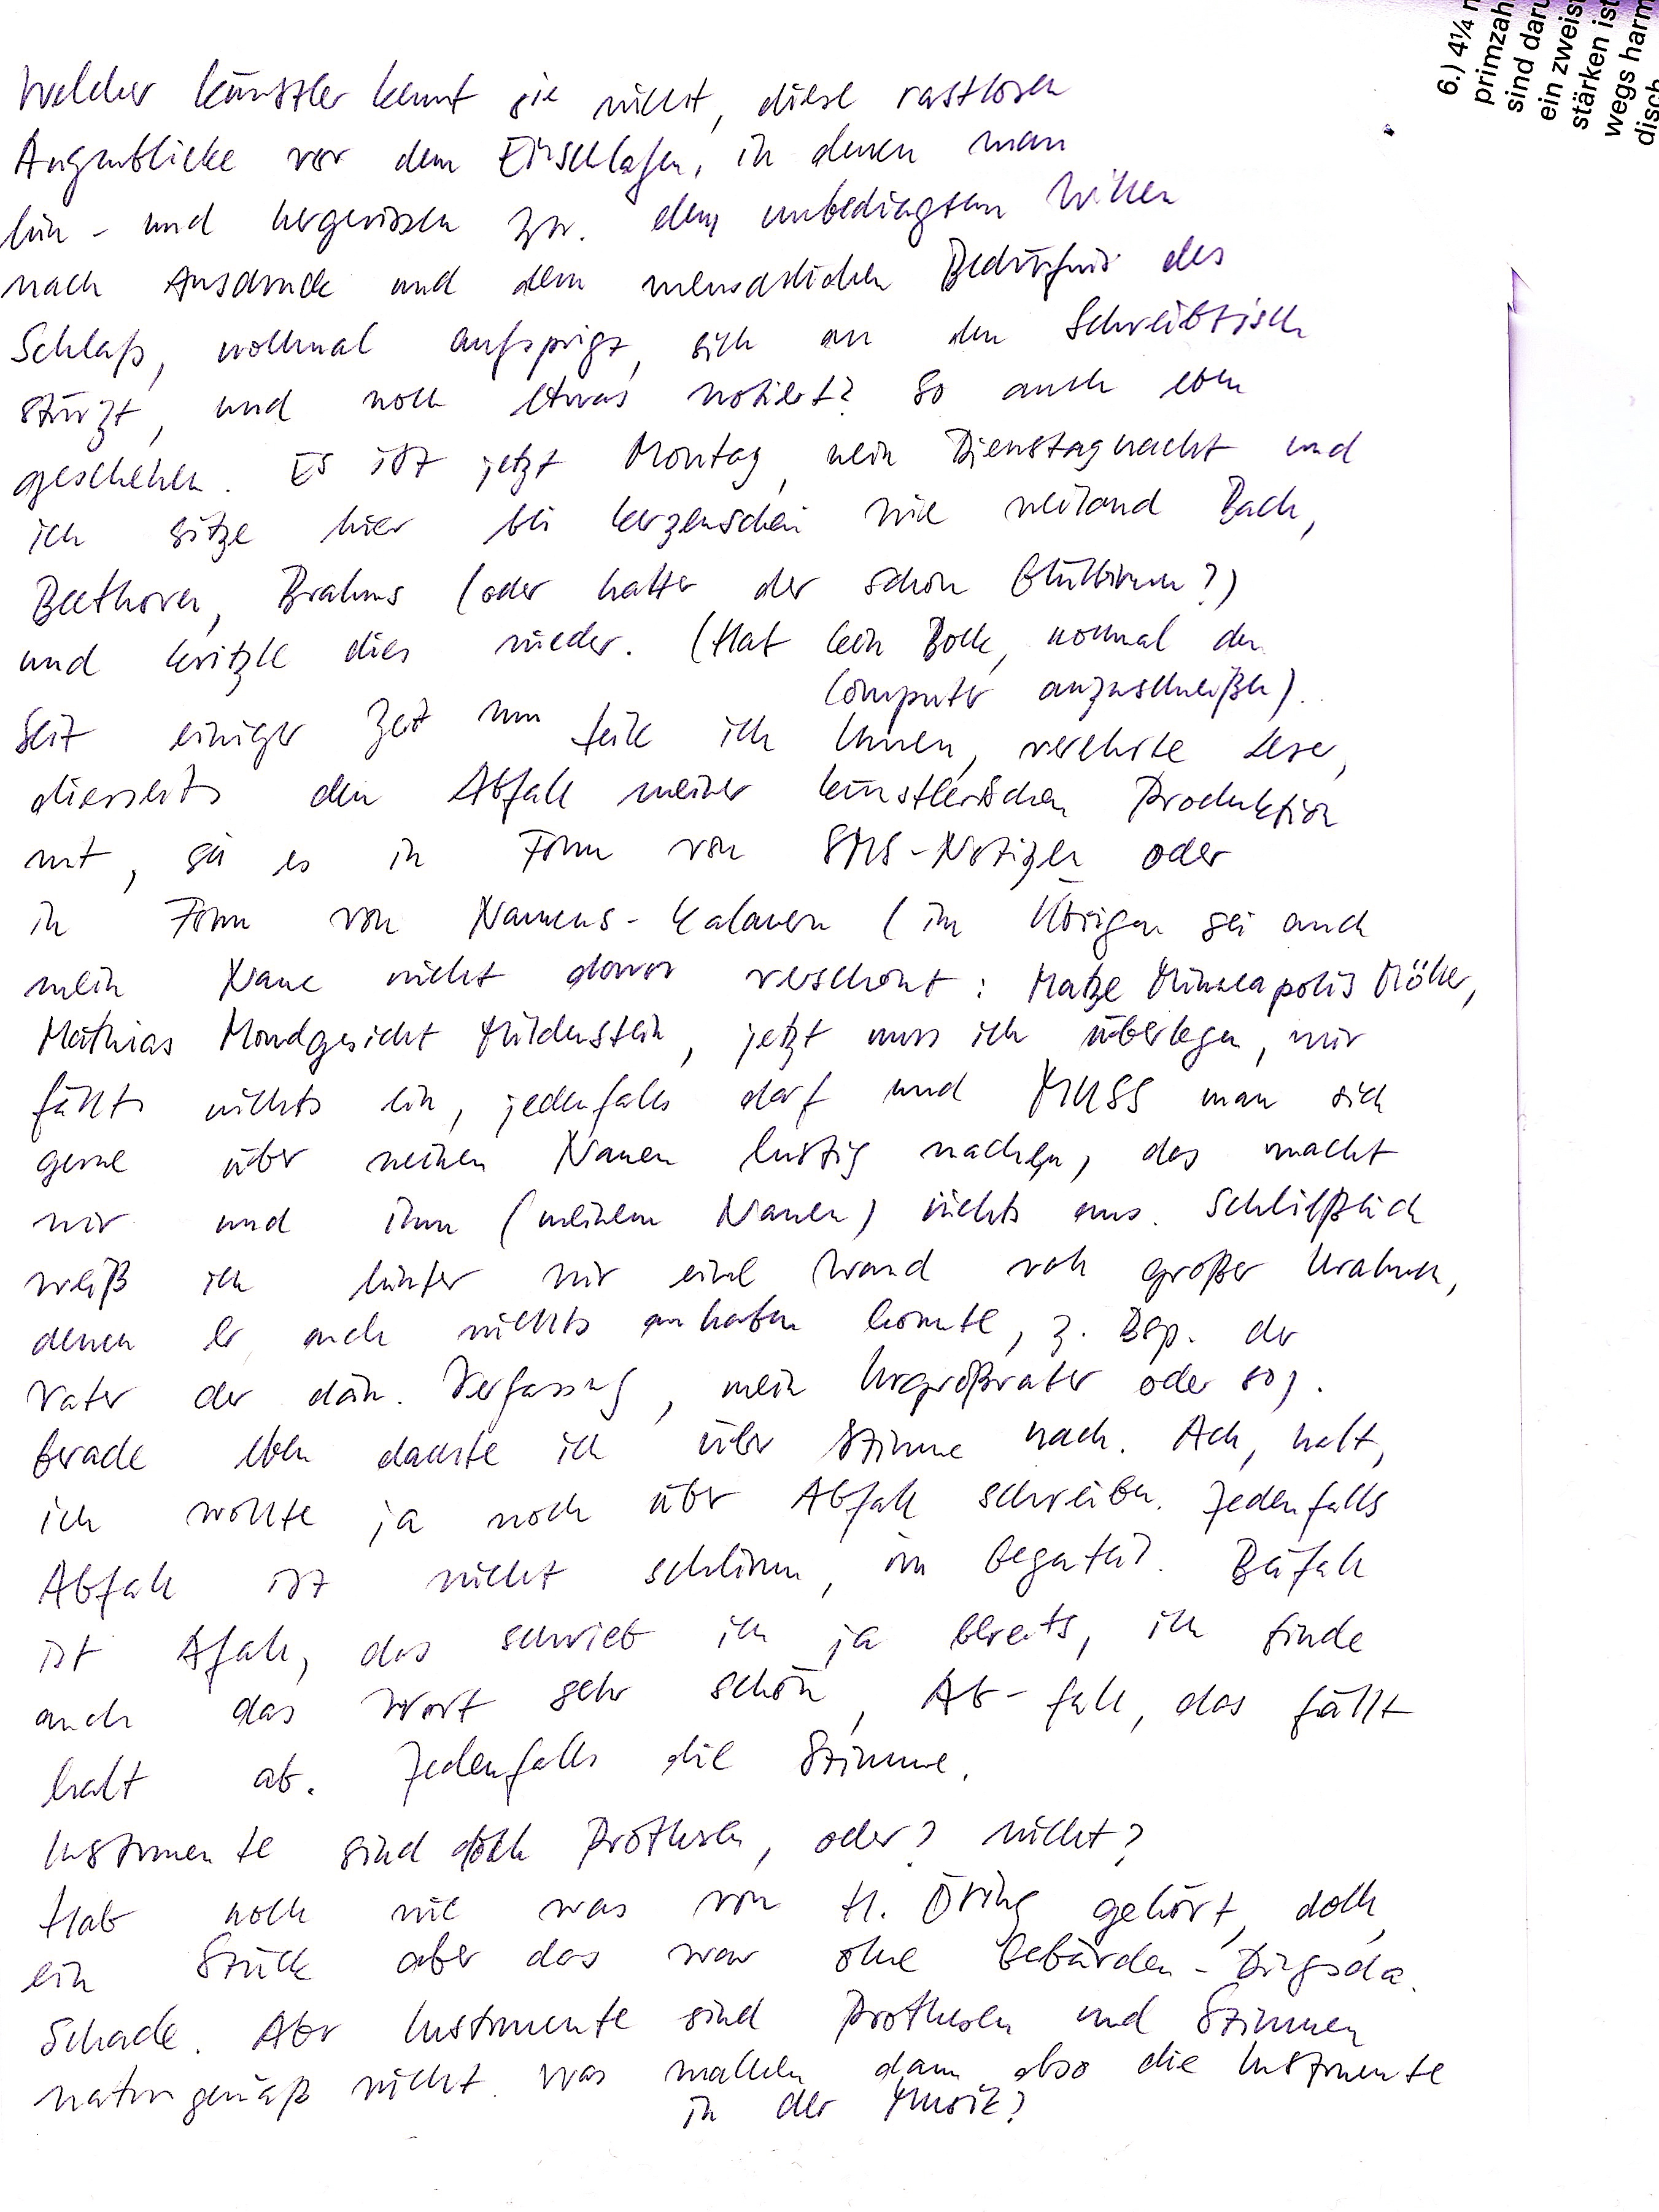 Welcher Künstler kennt sie nicht, diese rastlosen
Augenblicke vor dem Einschlafen, in denen man
hin- und hergerissen zw. dem unbedingten Willen
nach Ausdruck und dem menschlichen Bedürfnis des
Schlafs, nochmal aufspringt, sich an den Schreibtisch
stürzt, und noch etwas notiert? So auch eben
geschehen. Es ist jetzt Montag, nein Dienstagnacht und
ich sitze hier bei Kerzenschein wie weiland Bach,
Beethoven, Brahms (oder hatte der schon Glühbirnen?)
und kritzle dies nieder. (Hat kein Bock, nochmal den
Computer anzuschmeißen).
Seit einiger Zeit nun teile ich Ihnen, verehrte Leser,
dieserseits den Abfall meiner künstlerischen Produktion
mit, sei es in Form von SMS-Notizen oder
in Form von Namens-Kalauern (im Übrigen sei auch
mein Name nicht davor verschont: Matze Minneapolis Möller,
Mathias Mondgesicht Hildenstein, jetzt muss ich überlegen, mir
fällt nichts ein, jedenfalls darf und MUSS man sich
gerne über meinen Namen lustig machen, das macht
mir und ihm (meinem Namen) nichts aus. Schließlich
weiß ich hinter mir eine Wand voll großer Urahnen,
denen er auch nichts anhaben konnte, z. Bsp. der
Vater der dän. Verfassung, mein Urgroßvater oder so).
Gerade eben dachte ich über Stimme nach. Ach, halt,
ich wollte ja noch über Abfall schreiben. Jedenfalls
Abfall ist nicht schlimm, im Gegenteil. Beifall
ist Afall, das schrieb ich ja bereits, ich finde
auch das Wort sehr schön, Ab-fall, das fällt
halt ab. Jedenfalls die Stimme.
Instrumente sind doch Prothesen, oder? nicht?
Hab noch nie was von H. Öring gehört, doch,
ein Stück aber das war ohne Gebärden-Dingsda.
Schade. Aber Instrumente sind Prothesen und Stimmen
naturgemäß nicht. Was machen dann also die Instrumente
in der Musik?
6.) 4¼
primzah
sind daru
ein zweis
stärken ist
wegs harm
disch